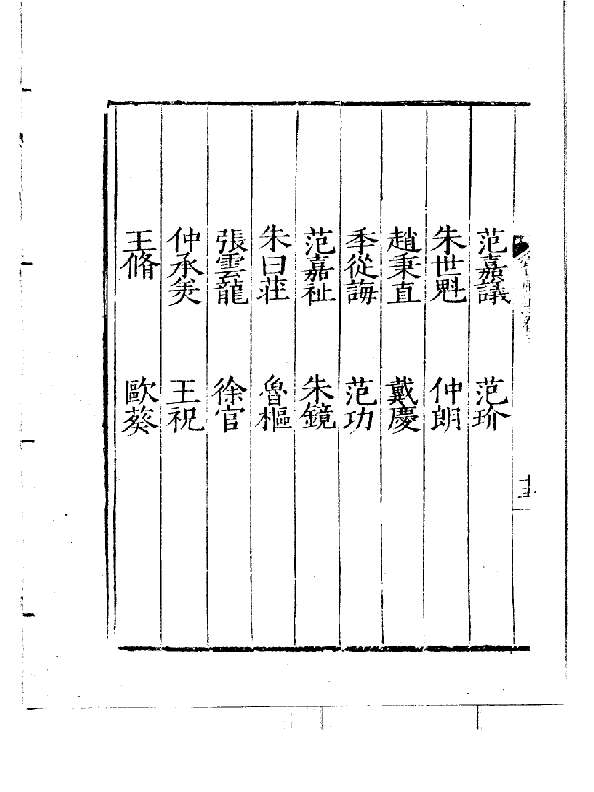 范嘉議　范玠
朱世魁　仲朗
趙秉直　戴慶
季從誨　范功
范嘉祉　朱鏡
朱曰莊　魯樞
張雲龍　徐官
仲承美　王祝
王脩　歐葵